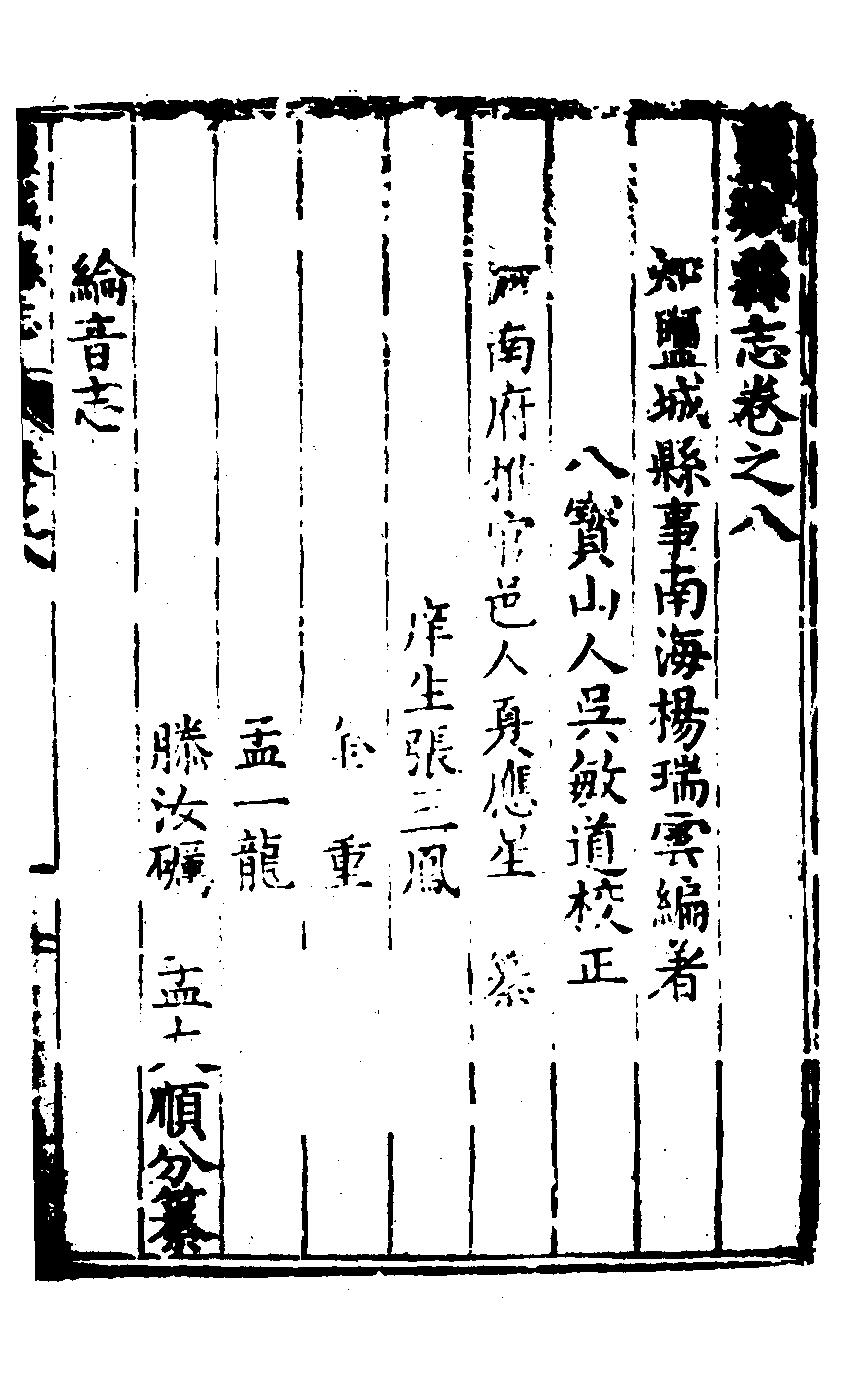 鹽城縣志卷之八
知鹽城縣事南海楊瑞雲編著
八寶山人吳敏道校正
河南府推官邑人夏應星 纂
庠生張三鳳
重
孟一龍
滕汝礪 孟大順分纂
綸音志